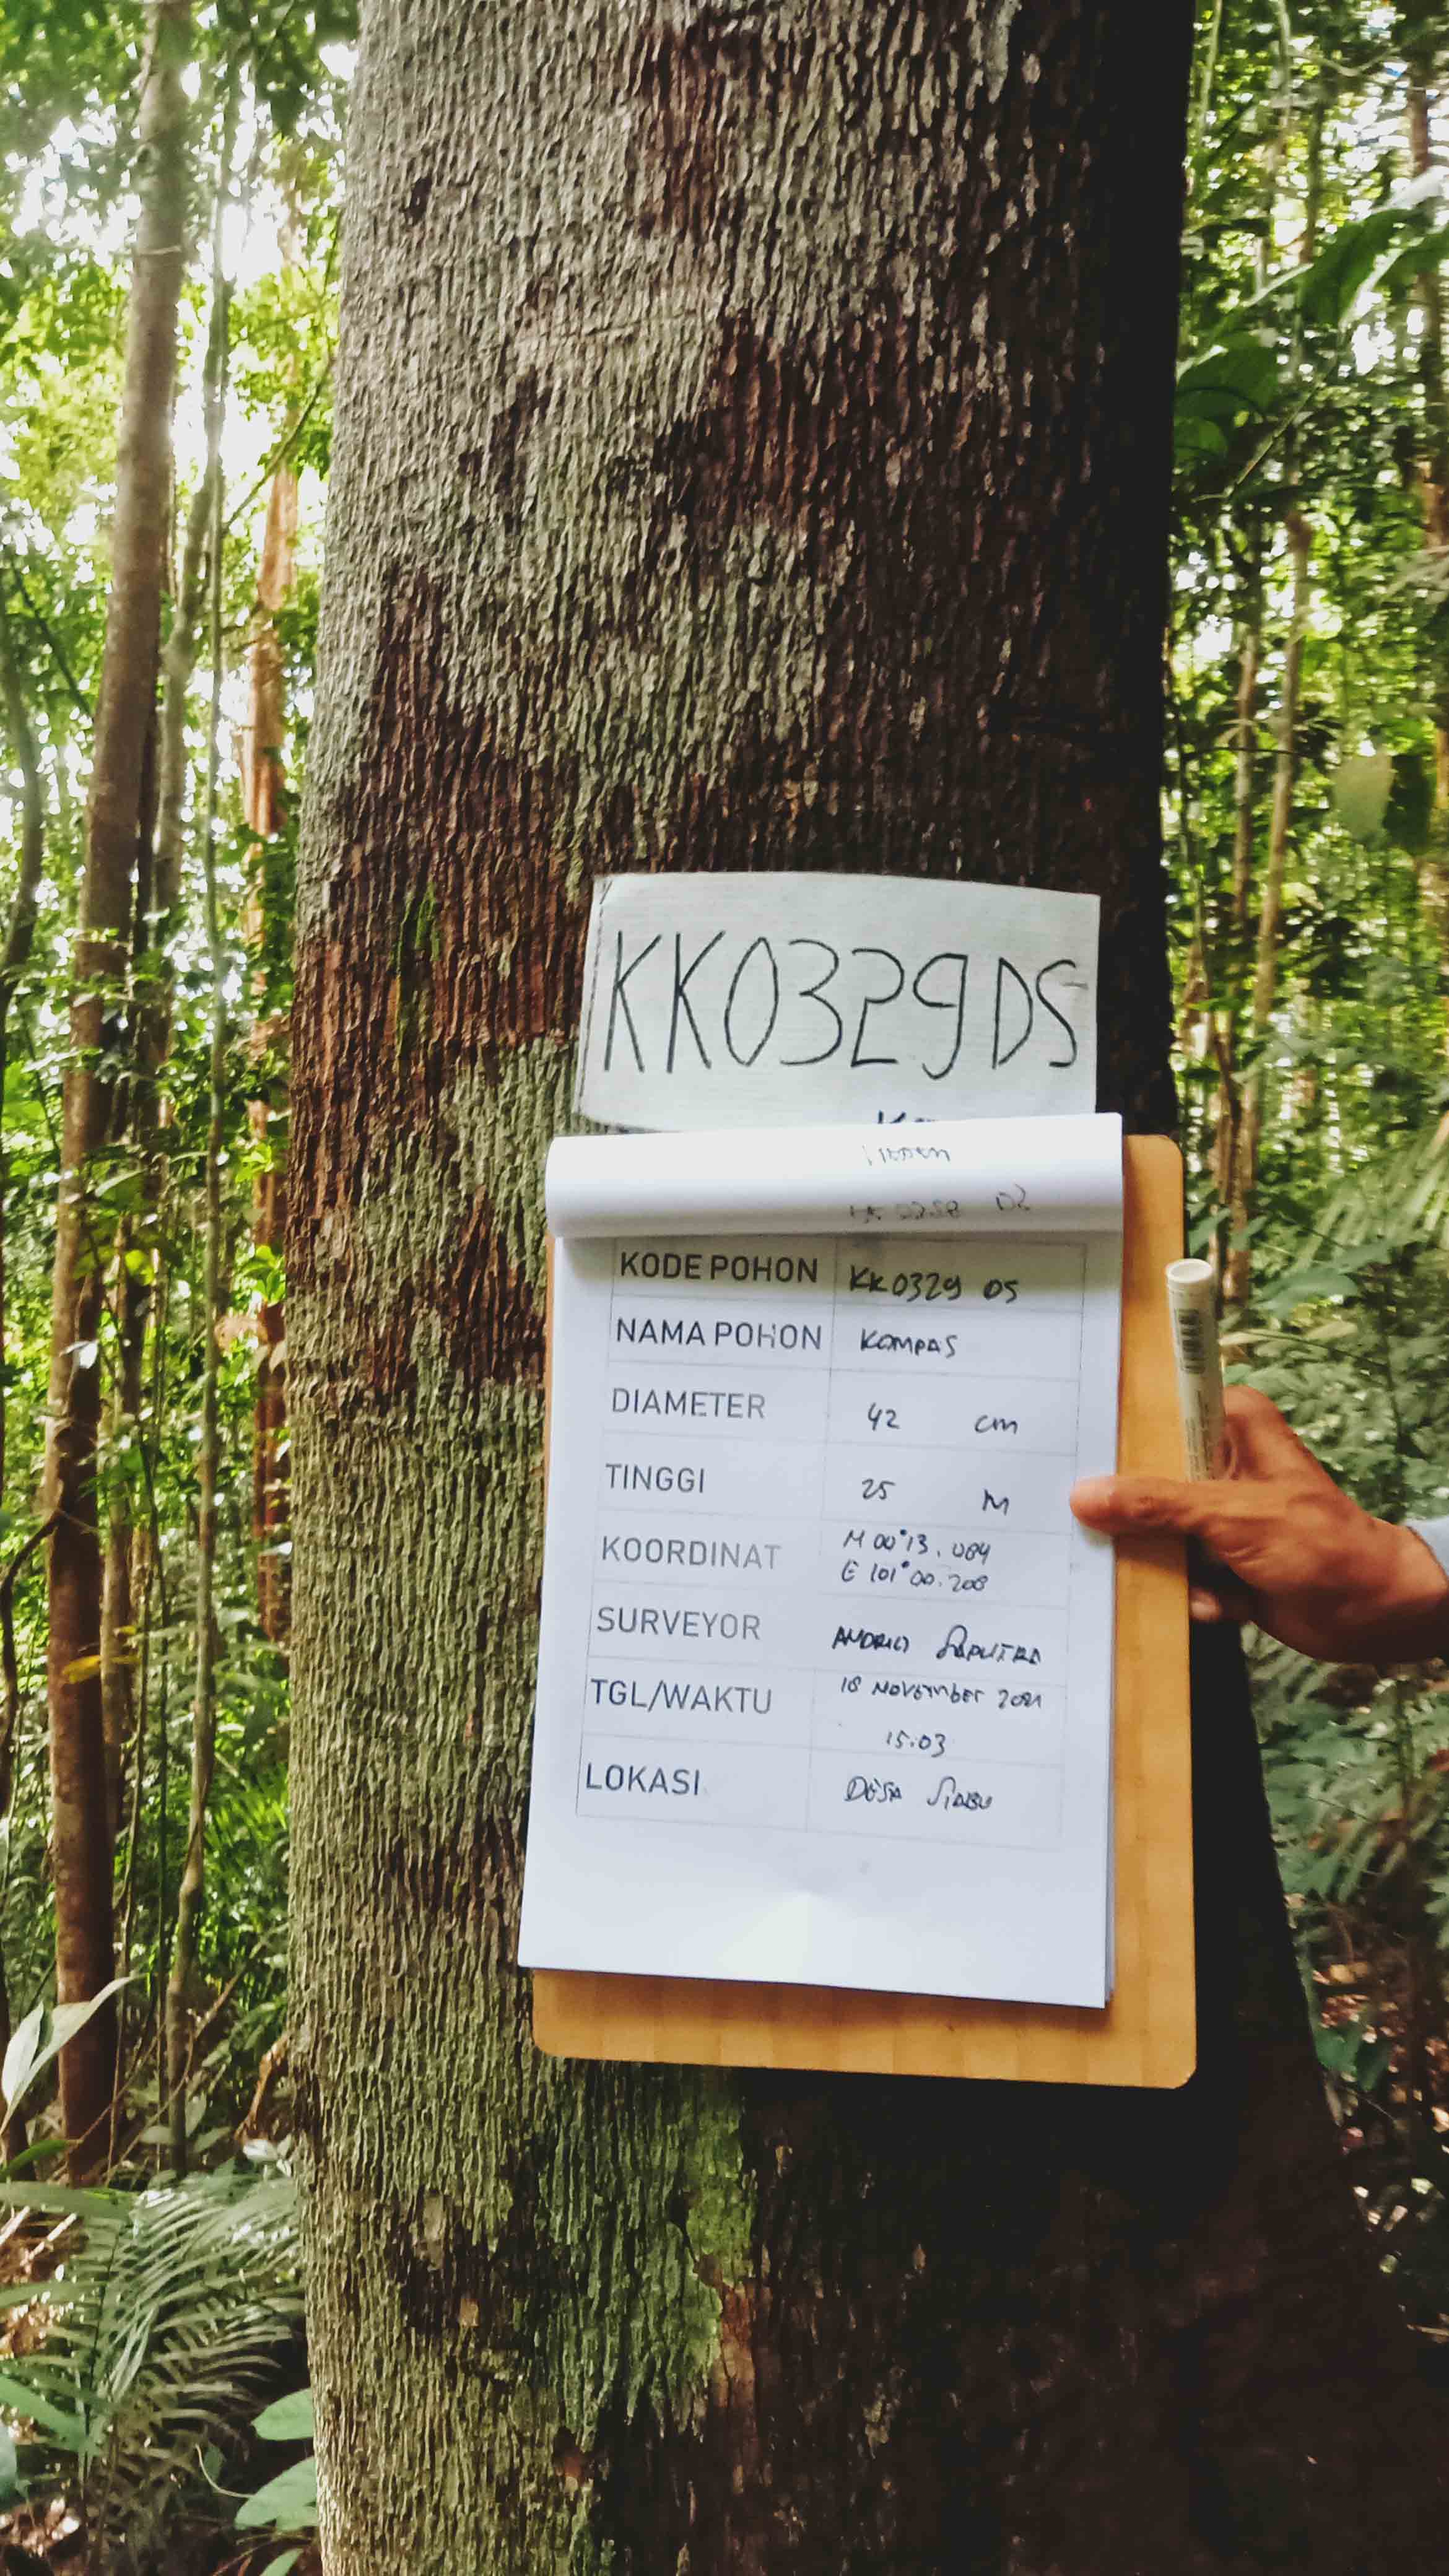 KK0329DS
KODE POHON KK0329 DS
NAMA POHON KOMPAS
DIAMETER 42 cm
TINGGI 25 M
KOORDINAT N 00°13.084
E 101°00.208
SURVEYOR SAPUTRA
TGL/WAKTU 18 November 2021
15.03
LOKASI DESA SIABU